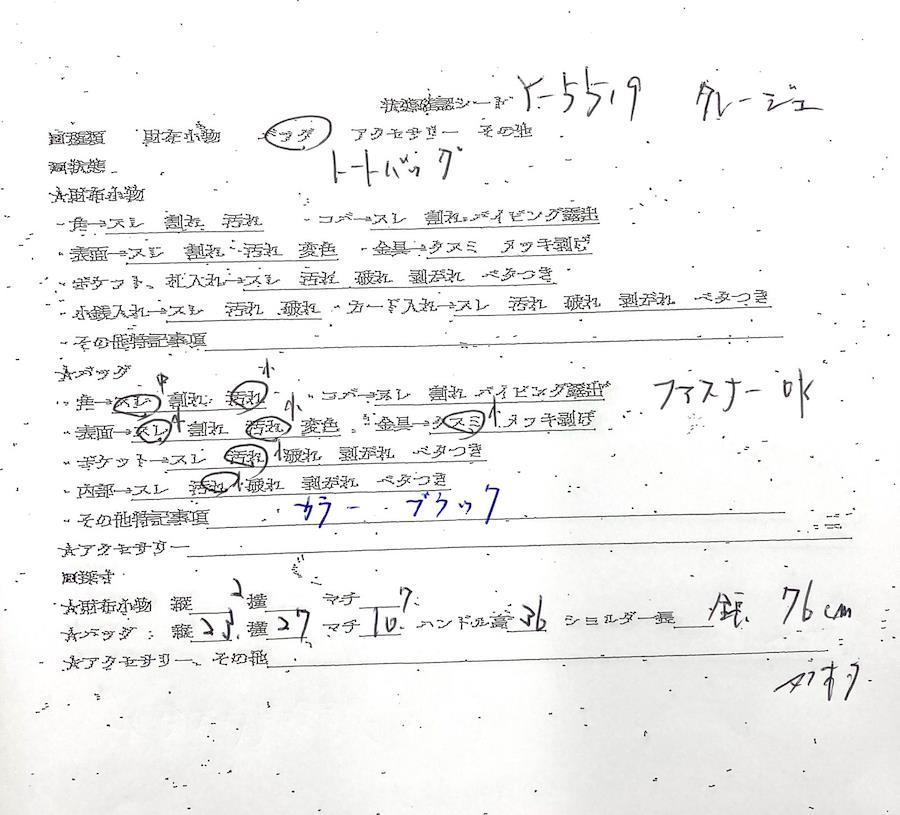 状態確認シード Y-5519 クレージュ
回種類 財布小物 バッグ アクセサリー その他
トートバッグ
回状態
★財布小物
・角→スレ 割れ 汚れ ・コバ→スレ 割れ パイピング露出
・表面→スレ 割れ 汚れ 変色 ・金具→クスミ メッキ剥げ
・ポケット、札入れ→スレ 汚れ 破れ 剥がれ ベタつき
・小銭入れ→スレ 汚れ 破れ ・カード入れ→スレ 汚れ 破れ 剥がれ ベタつき
・その他特記事項
★バッグ 小
・角→スレ 中 割れ 汚れ ・コバ→スレ 割れ パイピング露出 ファスナー OK
・表面→スレ 小 割れ 汚れ 小 変色 ・金具→クスミ 小 メッキ剥げ
・ポケット→スレ 汚れ 小 破れ 剥がれ ベタつき
・内部→スレ 汚れ 小 破れ 剥がれ ベタつき
・その他特記事項 カラー ブラック
★アクセサリー
回採寸
★財布小物 縦 2 横 マチ 7
★バッグ : 縦 23. 横 27 マチ 10. ハンドル高 36 ショルダー長 全長. 76cm
★アクセサリー、その他